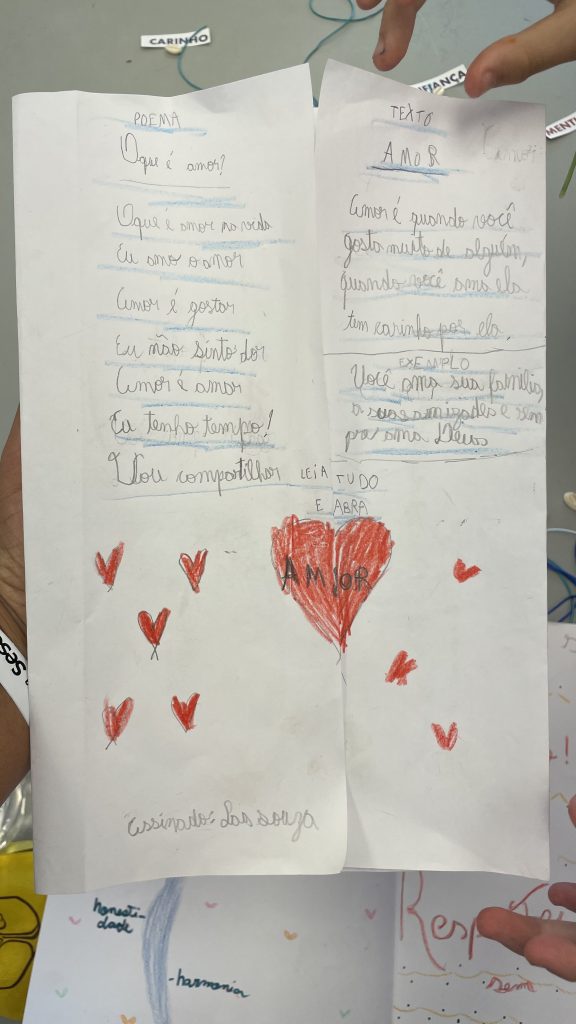 CARINHO
POEMA
O que é amor?
O que é amor na vida
Eu amo o amor
Amor é gostar
Eu não sinto dor
Amor é amor
Eu tenho tempo!
Vou compartilhar
TEXTO
AMOR
Amor é quando você
gosta muito de alguém,
quando você ama ela
tem carinho por ela.
EXEMPLO
Você ama sua família,
a suas amizades e
Deus
LEIA TUDO
E ABRA
AMOR
Assinado: Las souza
honesti-
dade
-harmonia